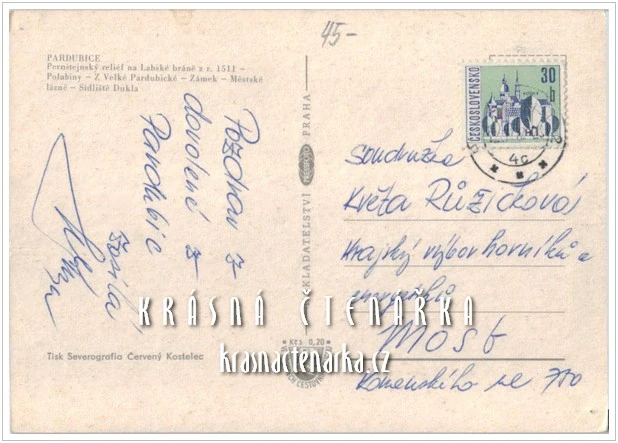 45-
PARDUBICE
Pernštejnský reliéf na Labské bráně z r. 1511 –
Polabiny – Z Velké Pardubické – Zámek – Městské
lázně – Sídliště Dukla
Pozdrav z
dovolené z
Pardubic
NAKLADATELSTVÍ PRAHA
ČESKOSLOVENSKO
30
h
4c
soudružka
Květa Růžičková
Krajský výbor horníků a
energetiků
Most
Komenského
KRÁSNÁ ČTENÁŘKA
krasnactenarka.cz
Kčs 0,20
Tisk Severografia Červený Kostelec